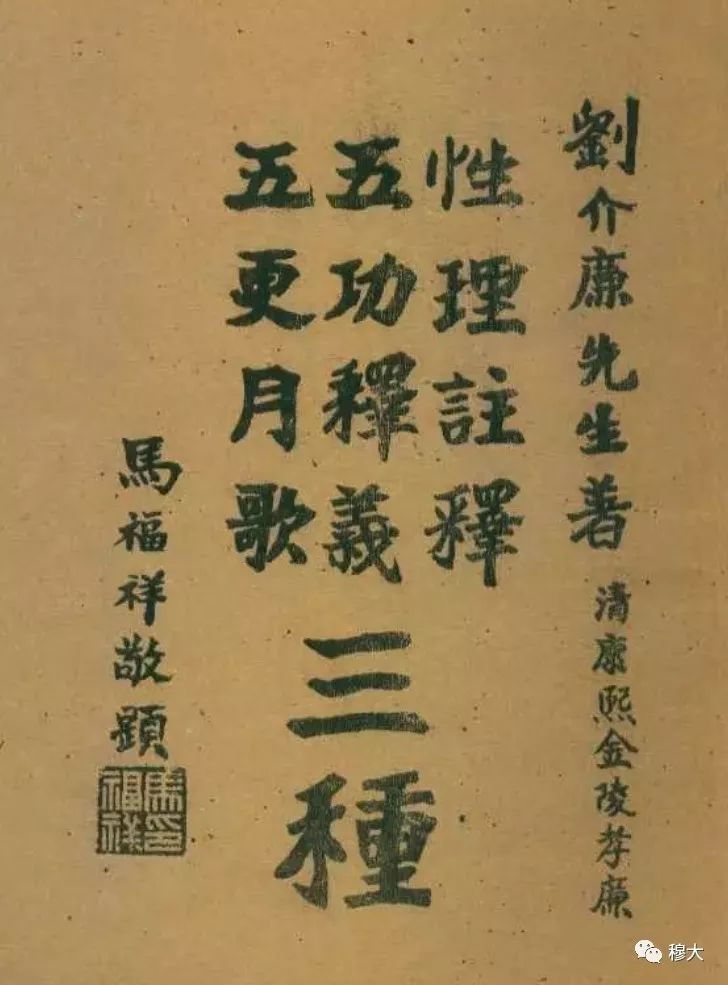 劉介廉先生著 清康熙金陵孝廉
性理註釋
五功釋義
五更月歌
三種
馬福祥敬題
馬福祥印
穆大